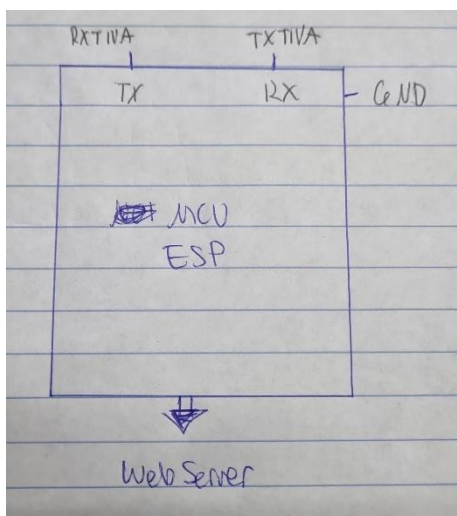 RXTIVA TXTIVA
TX RX GND
MCU
ESP
Web Server